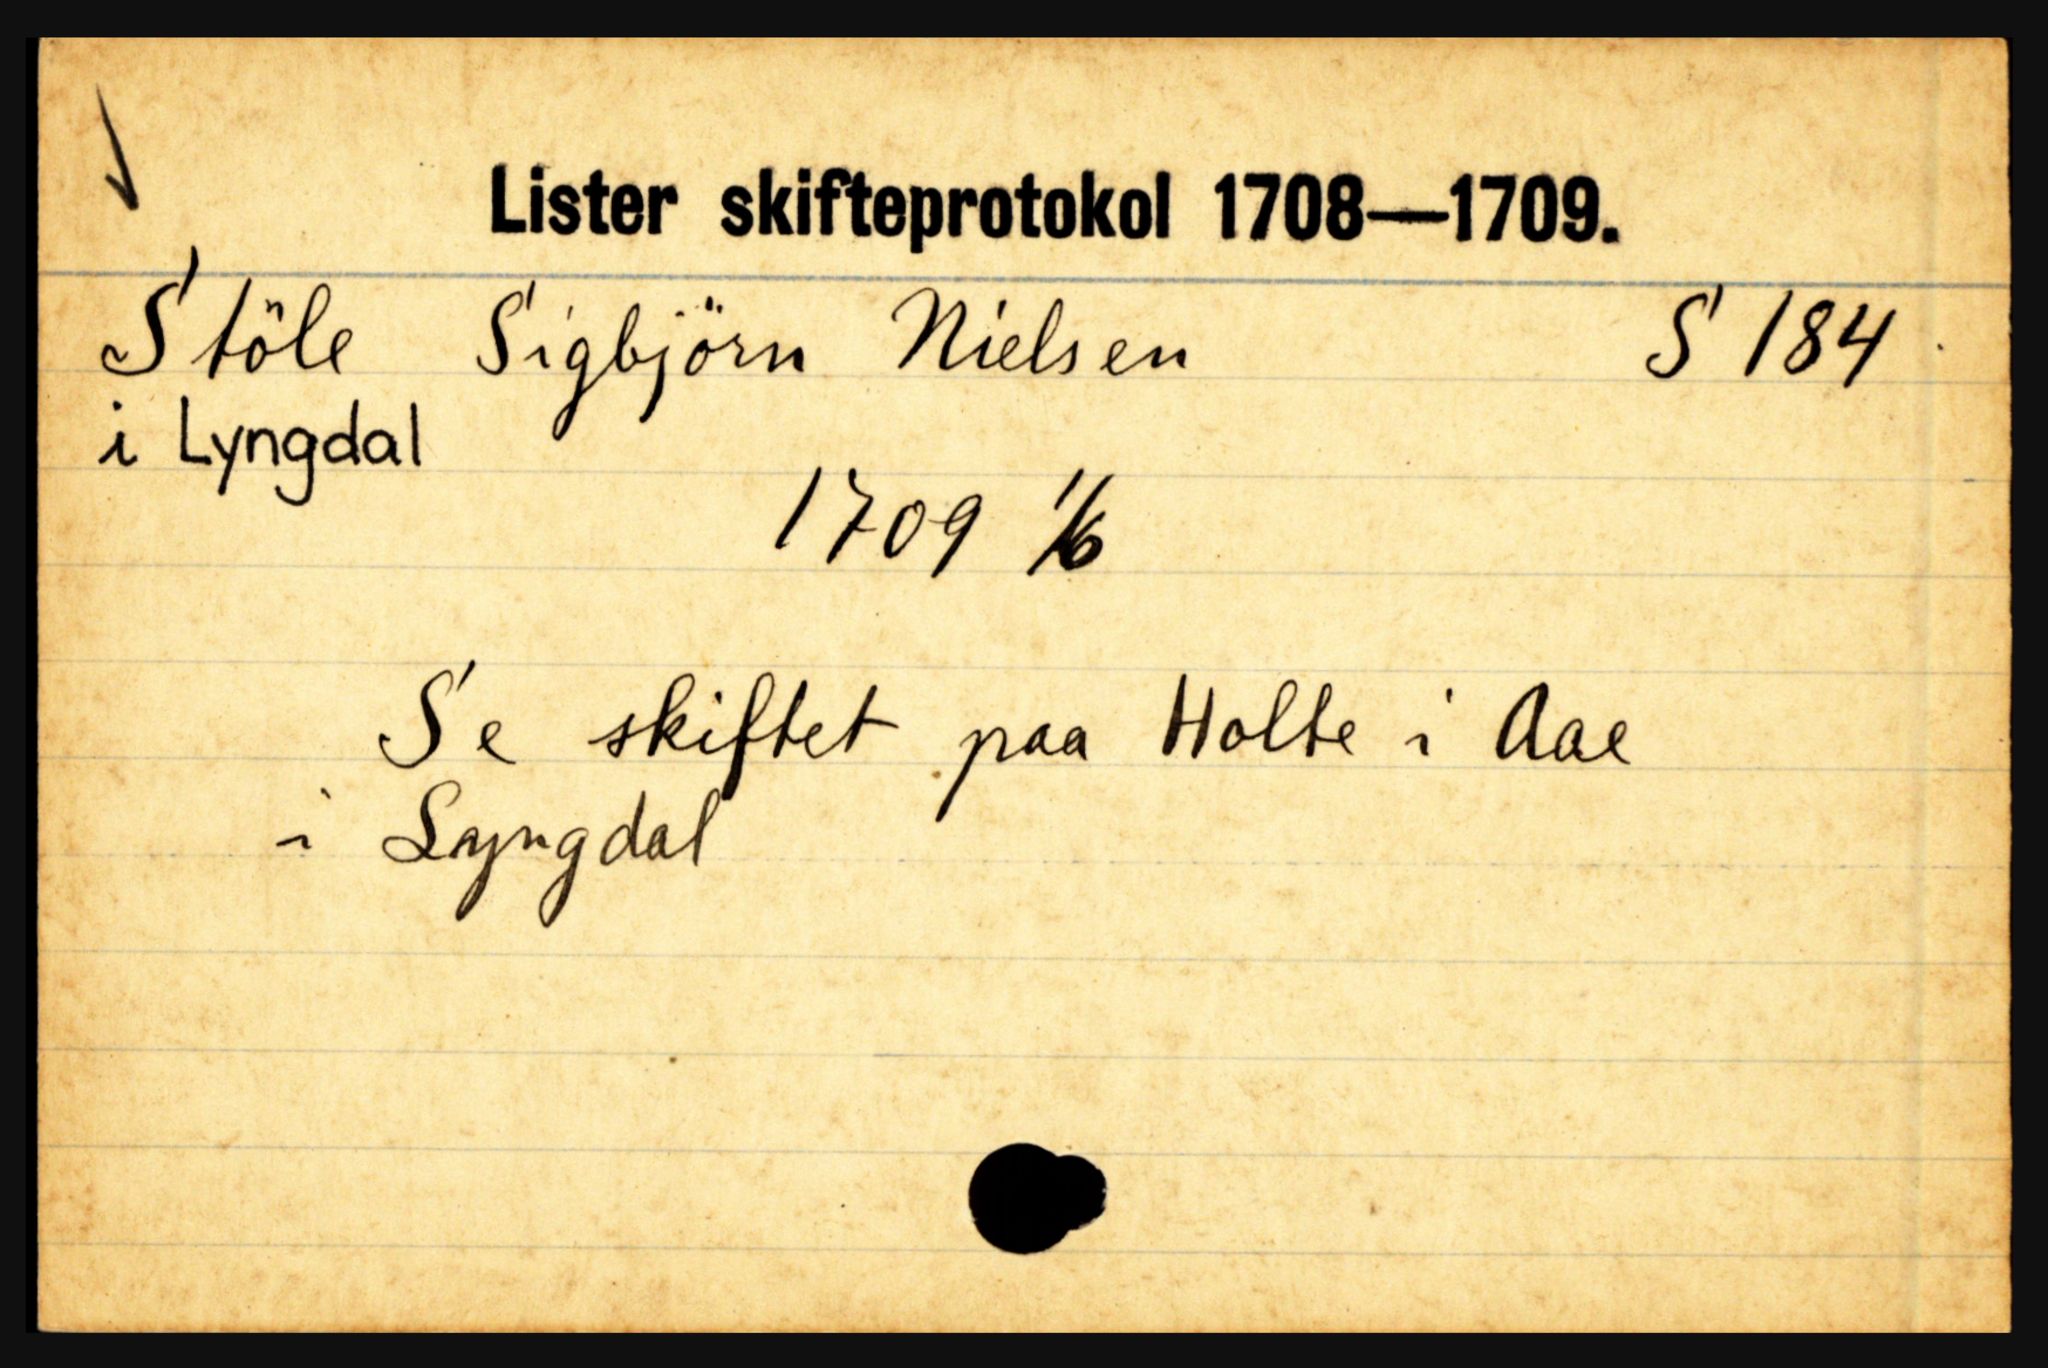 Lister skifteprotokol 1708—1709.
Stöle Sigbjörn Nielsen S 184
i Lyngdal
1709 1/6
Se skiftet paa Holte i Aae
i Lyngdal